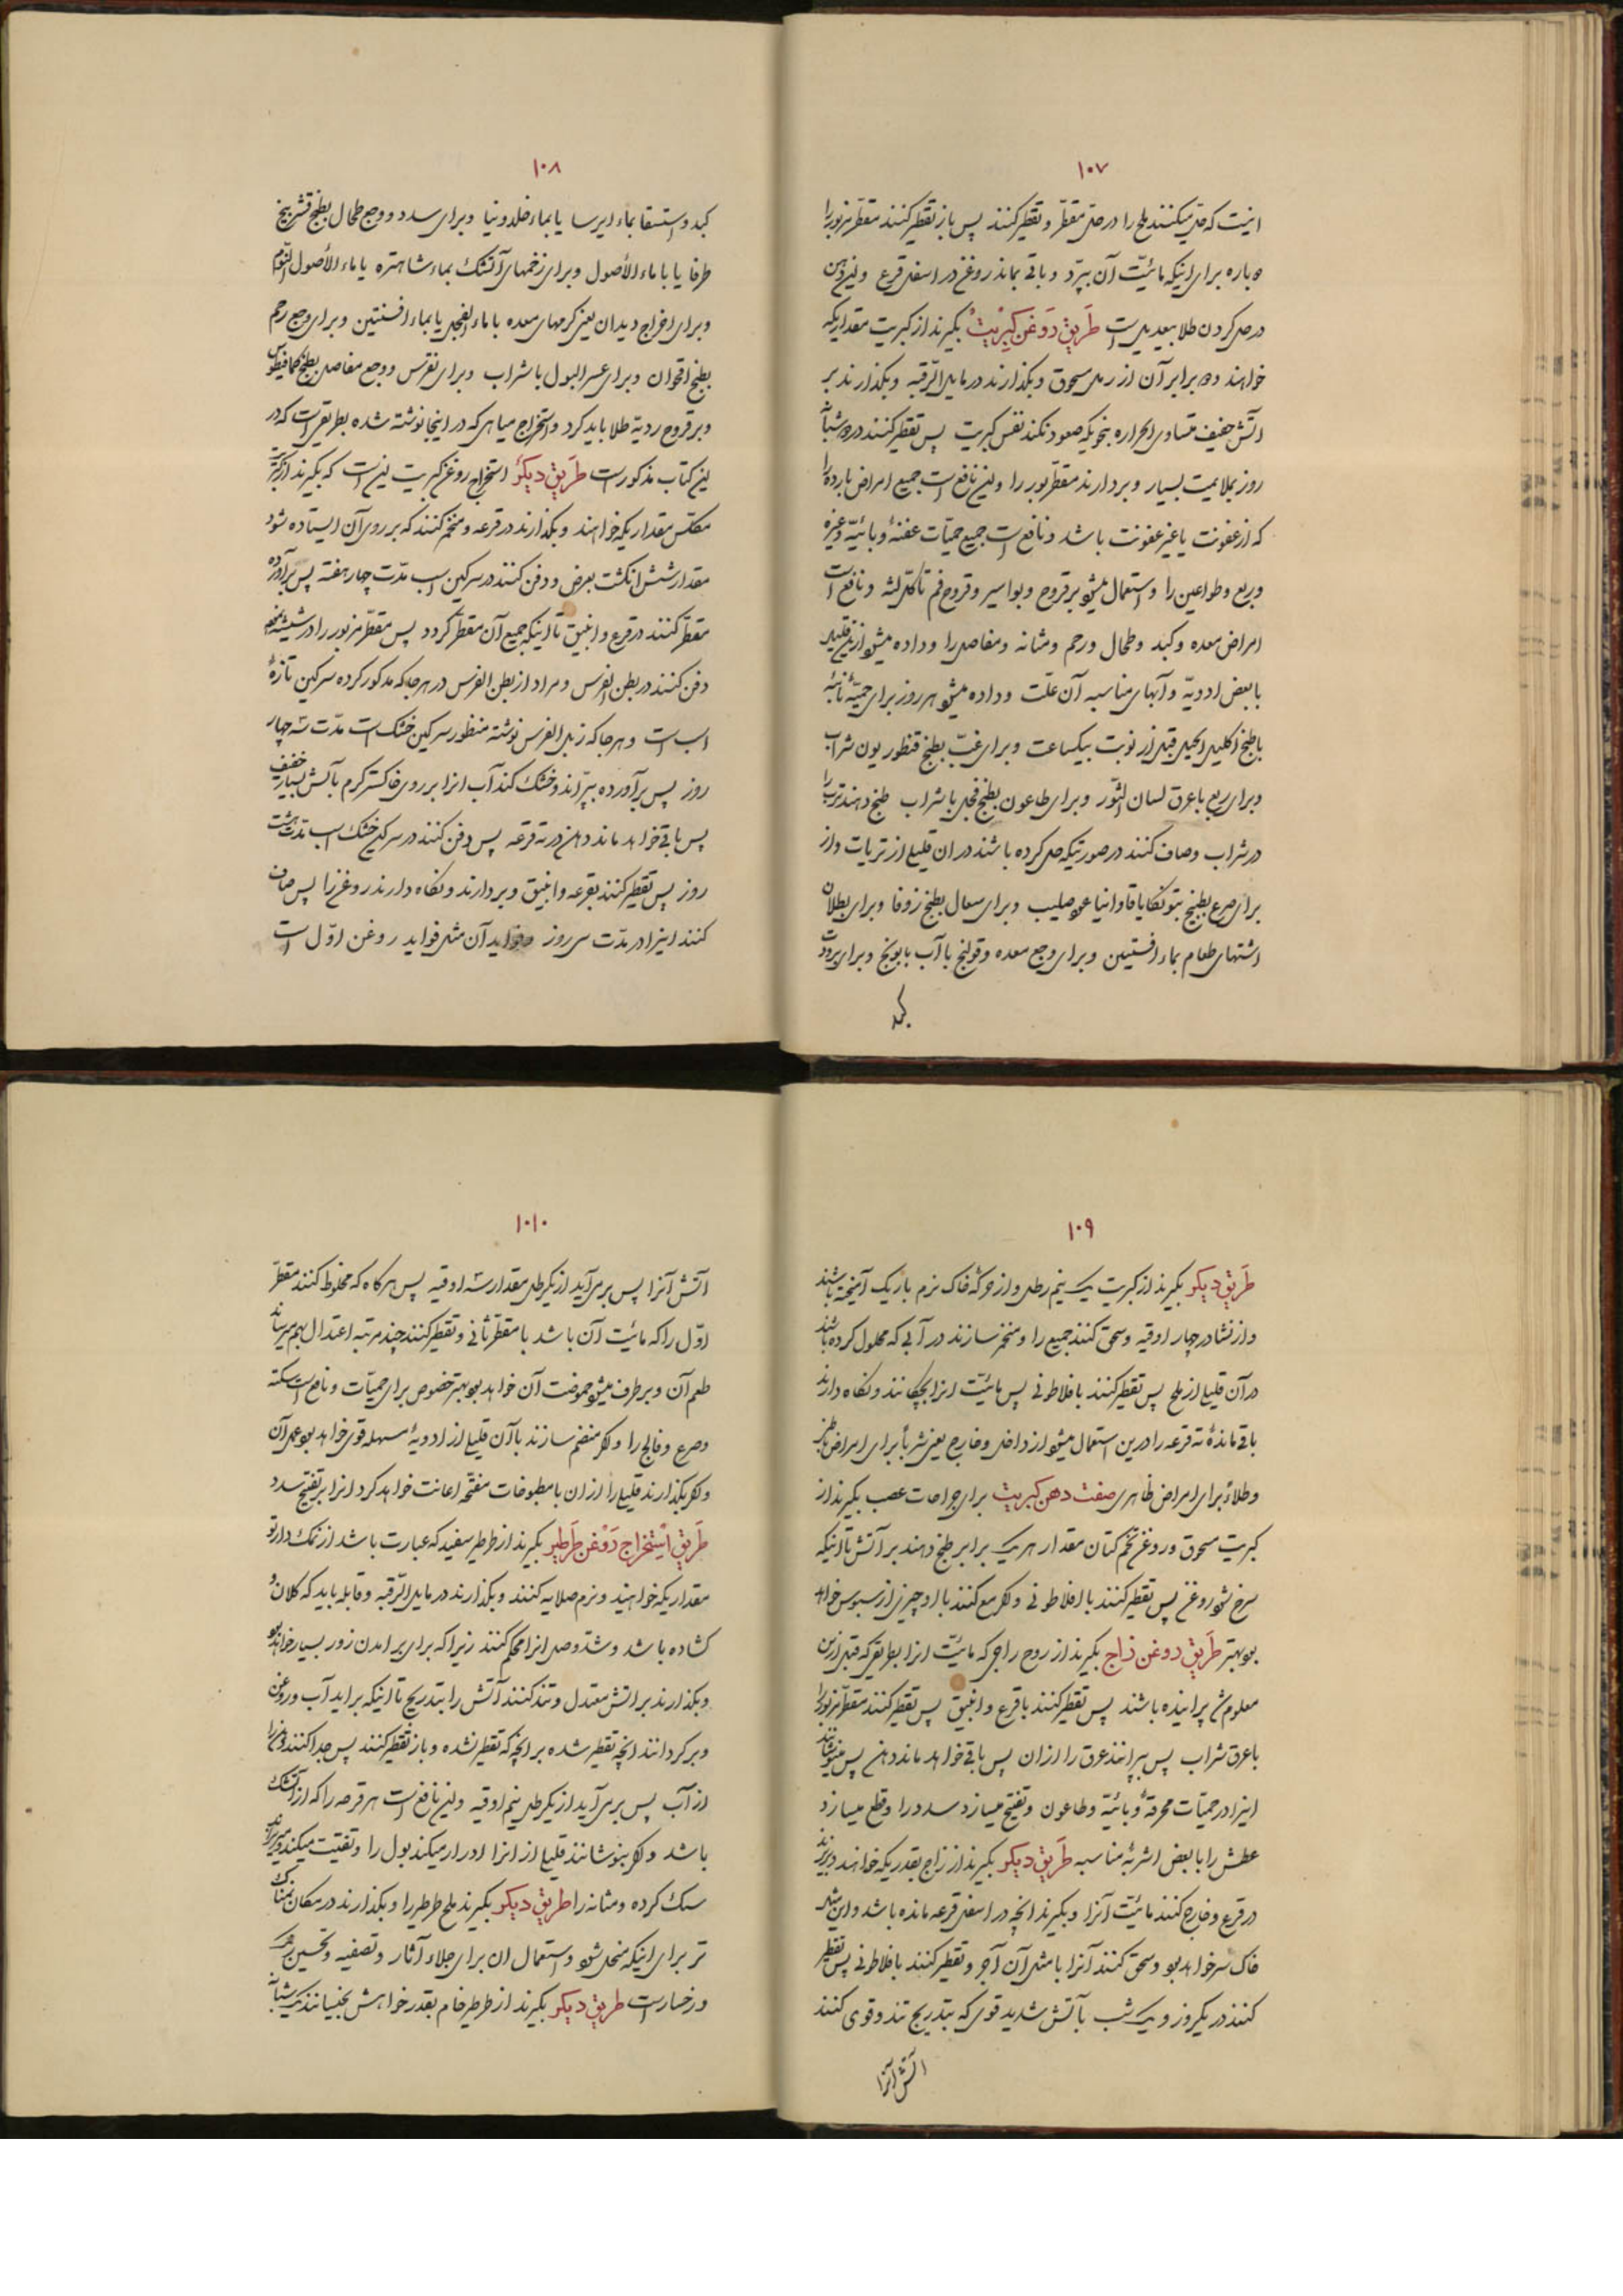 ۱۰۷
اینست که حل میکنند ملح را در حل مقطر و تقطیر کنند پس باز تقطیر کنند مقطر مزبور را
باره برای اینکه مائیّت آن بپرد و باقی بماند روغن در اسفل قرع و این دهن
در حل کردن طلا بیعدیل است طریق روغن کبریت بگیرند از کبریت مقداریکه
خواهند و برابر آن از رمل مسحوق و بگذارند در مایل الرّقبه و بگذارند بر
آتش خفیف متساوی الحراره بنحویکه صعود نکند نفس کبریت پس تقطیر کنند در شبا
روز بملایمت بسیار و بردارند مقطر مزبور را و این نافع است جمیع امراض بارده را
که از عفونت یا غیر عفونت باشد و نافع است جمیع حمیّات عفنهٔ وبائیّه و غیره
و ربع و طواعین را و استعمال میشود بر قروح و بواسیر و قروح فم تاکل لثه و نافع است
امراض معده و کبد و طحال و رحم و مثانه و مفاصل را و داده میشود ازین قلیلی
با بعض ادویّه و آبهای مناسبه آن علّت و داده میشود هر روز برای حمیّهٔ نائبه
با طبخ اکلیل الجبل قبل از نوبت بیکساعت و برای غبّ بطبخ قنطوریون شراب
و برای ربع با عرق لسان الثّور و برای طاعون بطبخ فجل با شراب طبخ دهند ترب را
در شراب و صاف کنند در صورتیکه حل کرده باشند در ان قلیلی از تریاق و از
برای صرع بطبخ بتونکا یا فاوانیا عود صلیب و برای سعال بطبخ زوفا و برای بطلان
اشتهای طعام بماء افسنتین و برای وجع معده و قولنج با آب بابونج و برای برودت
کبد
۱۰۸
کبد و استسقا بماء ایرسا یا بماء خلدونیا و برای سدد و وجع طحال بطبخ قشر بیخ
طرفا یا با ماء الأصول و برای زخمهای آتشک بماء شاهتره یا ماء الأصول
و برای اخراج دیدان یعنی کرمهای معده با ماء الفجل یا بماء افسنتین و برای وجع رحم
بطبخ اقحوان و برای عسر البول با شراب و برای نقرس و وجع مفاصل بطبخ کمافیطوس
و بر قروح ردیّه طلا باید کرد و استخراج میاهی که در اینجا نوشته شده بطریقی است که در
این کتاب مذکور است طریق دیگر استخراج روغن کبریت این است که بگیرند از کبریت
مکلّس مقداریکه خواهند و بگذارند در قرعه و منخمر کنند که بر روی آن ایستاده شود
مقدار شش انگشت بعرض و دفن کنند در سرکین اسب مدّت چهار هفته پس برآورده
مقطّر کنند در قرع و انبیق تا اینکه جمیع آن مقطّر گردد پس مقطّر مزبور را در شیشه
دفن کنند در بطن الفرس و مراد از بطن الفرس در هر جا که مذکور کرده سرکین تازهٔ
اسب است و هر جا که زبل الفرس نوشته منظور سرکین خشک است مدّت سه چهار
روز پس برآورده بپرّاند و خشک کند آب انرا بر روی خاکستر گرم بآتش بسیار خفیف
پس باقی خواهد ماند دهن در ته قرعه پس دفن کنند در سرکین خشک اسب مدّت هشت
روز پس تقطیر کنند بقرعه و انبیق و بردارند و نگاه دارند روغن را پس صاف
کنند اینرا در مدّت سی روز و فواید آن مثل فواید روغن اوّل است
۱۰۹
طریق دیگر بگیرند از کبریت یک نیم رطل و از خاک نرم باریک آمیخته باشند
و از نشادر چهار اوقیه و سحق کنند جمیع را و منخمر سازند در آبی که محلول کرده باشند
در آن قلیلی از ملح پس تقطیر کنند بافلاطونی پس مائیّت انرا بچکانند و نگاه دارند
باقی ماندهٔ ته قرعه را درین استعمال میشود از داخل و خارج یعنی شرباً برای امراض باطنی
و طلاءً برای امراض ظاهری صفت دهن کبریت برای جراحات عصب بگیرند از
کبریت مسحوق و روغن تخم کتان مقدار هر یک برابر طبخ دهند بر آتش تا اینکه
سرخ شود روغن پس تقطیر کنند بافلاطونی و اگر جمع کنند با او چیزی از سبوس خواهد
بود بهتر طریق روغن زاج بگیرند از روح زاجی که مائیّت انرا بطریقی که قبل ازین
معلوم شد پرانیده باشند پس تقطیر کنند با قرع و انبیق پس تقطیر کنند مقطّر مزبور را
با عرق شراب پس بپرانند عرق را از ان پس باقی خواهد ماند دهن پس بنوشانند
اینرا در حمیّات محرقهٔ و بائیّه و طاعون و تفتیح میسازد سدد را و قطع میسازد
عطش را با بعض اشربهٔ مناسبه طریق دیگر بگیرند از زاج بقدریکه خواهند و بریزند
در قرع و خارج کنند مائیّت آنرا و بگیرند انچه در اسفل قرعه مانده باشد و این مثل
خاک سرخ خواهد بود و سحق کنند آنرا با مثل آن آجر و تقطیر کنند بافلاطونی پس تقطیر
کنند در یکروز و یک شب بآتش شدید قوی که بتدریج تند و قوی کنند
اتش آنرا
۱۰۱۰
آتش آنرا پس برمی‌آید از یکرطل مقدار سه اوقیه پس هرگاه که مخلوط کنند مقطّر
اوّل را که مائیّت آن باشد با مقطّر ثانی و تقطیر کنند چند مرتبه اعتدال بهم میرساند
طعم آن و برطرف میشود حموضت آن خواهد بود بهتر خصوص برای حمیّات و نافع است سکته
و صرع و فالج را و اگر منضم سازند با آن قلیلی از ادویهٔ مسهله قوی خواهد بود عمل آن
و اگر بگذارند قلیلی را از ان با مطبوخات مفتّحه اعانت خواهد کرد انرا بر تفتیح سدد
طریق استخراج روغن طرطیر بگیرند از طرطیر سفید که عبارت باشد از نمک دارتو
مقداریکه خواهید و نرم صلایه کنند و بگذارند در مایل الرّقبه و قابله باید که کلان و
گشاده باشد و شدّ وصل انرا محکم کنند زیرا که برای بر امدن زور بسیار خواهد بود
و بگذارند بر اتش معتدل و تند کنند آتش را بتدریج تا اینکه براید آب و روغن
و برگردانند انچه تقطیر شده بر انچه که تقطیر نشده و باز تقطیر کنند پس جدا کنند دهن را
از آب پس برمی‌آید از یکرطل نیم اوقیه و این نافع است هر قرحه را که از آتشک
باشد و اگر بنوشانند قلیلی از انرا ادرار میکند بول را و تفتیت میکند و میریزاند
سنگ گرده و مثانه را طریق دیگر بگیرند ملح طرطیر را و بگذارند در مکان نمناک
تر برای اینکه منحل شود و استعمال ان برای جلاء آثار و تصفیه و تحسین رنگ
و رخسار است طریق دیگر بگیرند از طرطیر خام بقدر خواهش بخیسانند یک شبا